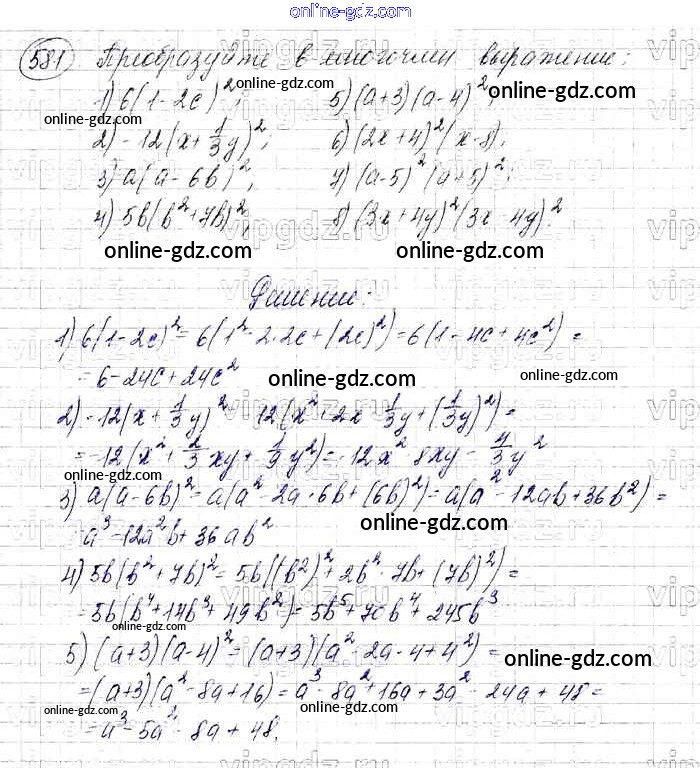 online-gdz.com
581 Преобразуйте в многочлен выражение:
1) 6(1-2c)²; 5) (a+3)(a-4)²;
online-gdz.com online-gdz.com
2) -12(x+1/3y)²; 6) (2x+4)²(x-8);
online-gdz.com online-gdz.com
3) a(a-6b)²; 7) (a-5)²(a+5)²;
4) 5b(b²+7b)²; 8) (3x+4y)²(3x-4y)².
online-gdz.com online-gdz.com
Решение:
1) 6(1-2c)²=6(1²-2·2c+(2c)²)=6(1-4c+4c²)=
=6-24c+24c²
online-gdz.com online-gdz.com
2) -12(x+1/3y)²=-12(x²+2x·1/3y+(1/3y)²)=
=-12(x²+2/3xy+1/9y²)=-12x²-8xy-4/3y²
online-gdz.com
3) a(a-6b)²=a(a²-2a·6b+(6b)²)=a(a²-12ab+36b²)=
=a³-12a²b+36ab²
online-gdz.com
4) 5b(b²+7b)²=5b((b²)²+2b²·7b+(7b)²)=
=5b(b⁴+14b³+49b²)=5b⁵+70b⁴+245b³
online-gdz.com
5) (a+3)(a-4)²=(a+3)(a²-2a·4+4²)=
online-gdz.com
=(a+3)(a²-8a+16)=a³-8a²+16a+3a²-24a+48=
online-gdz.com online-gdz.com
=a³-5a²-8a+48.
online-gdz.com